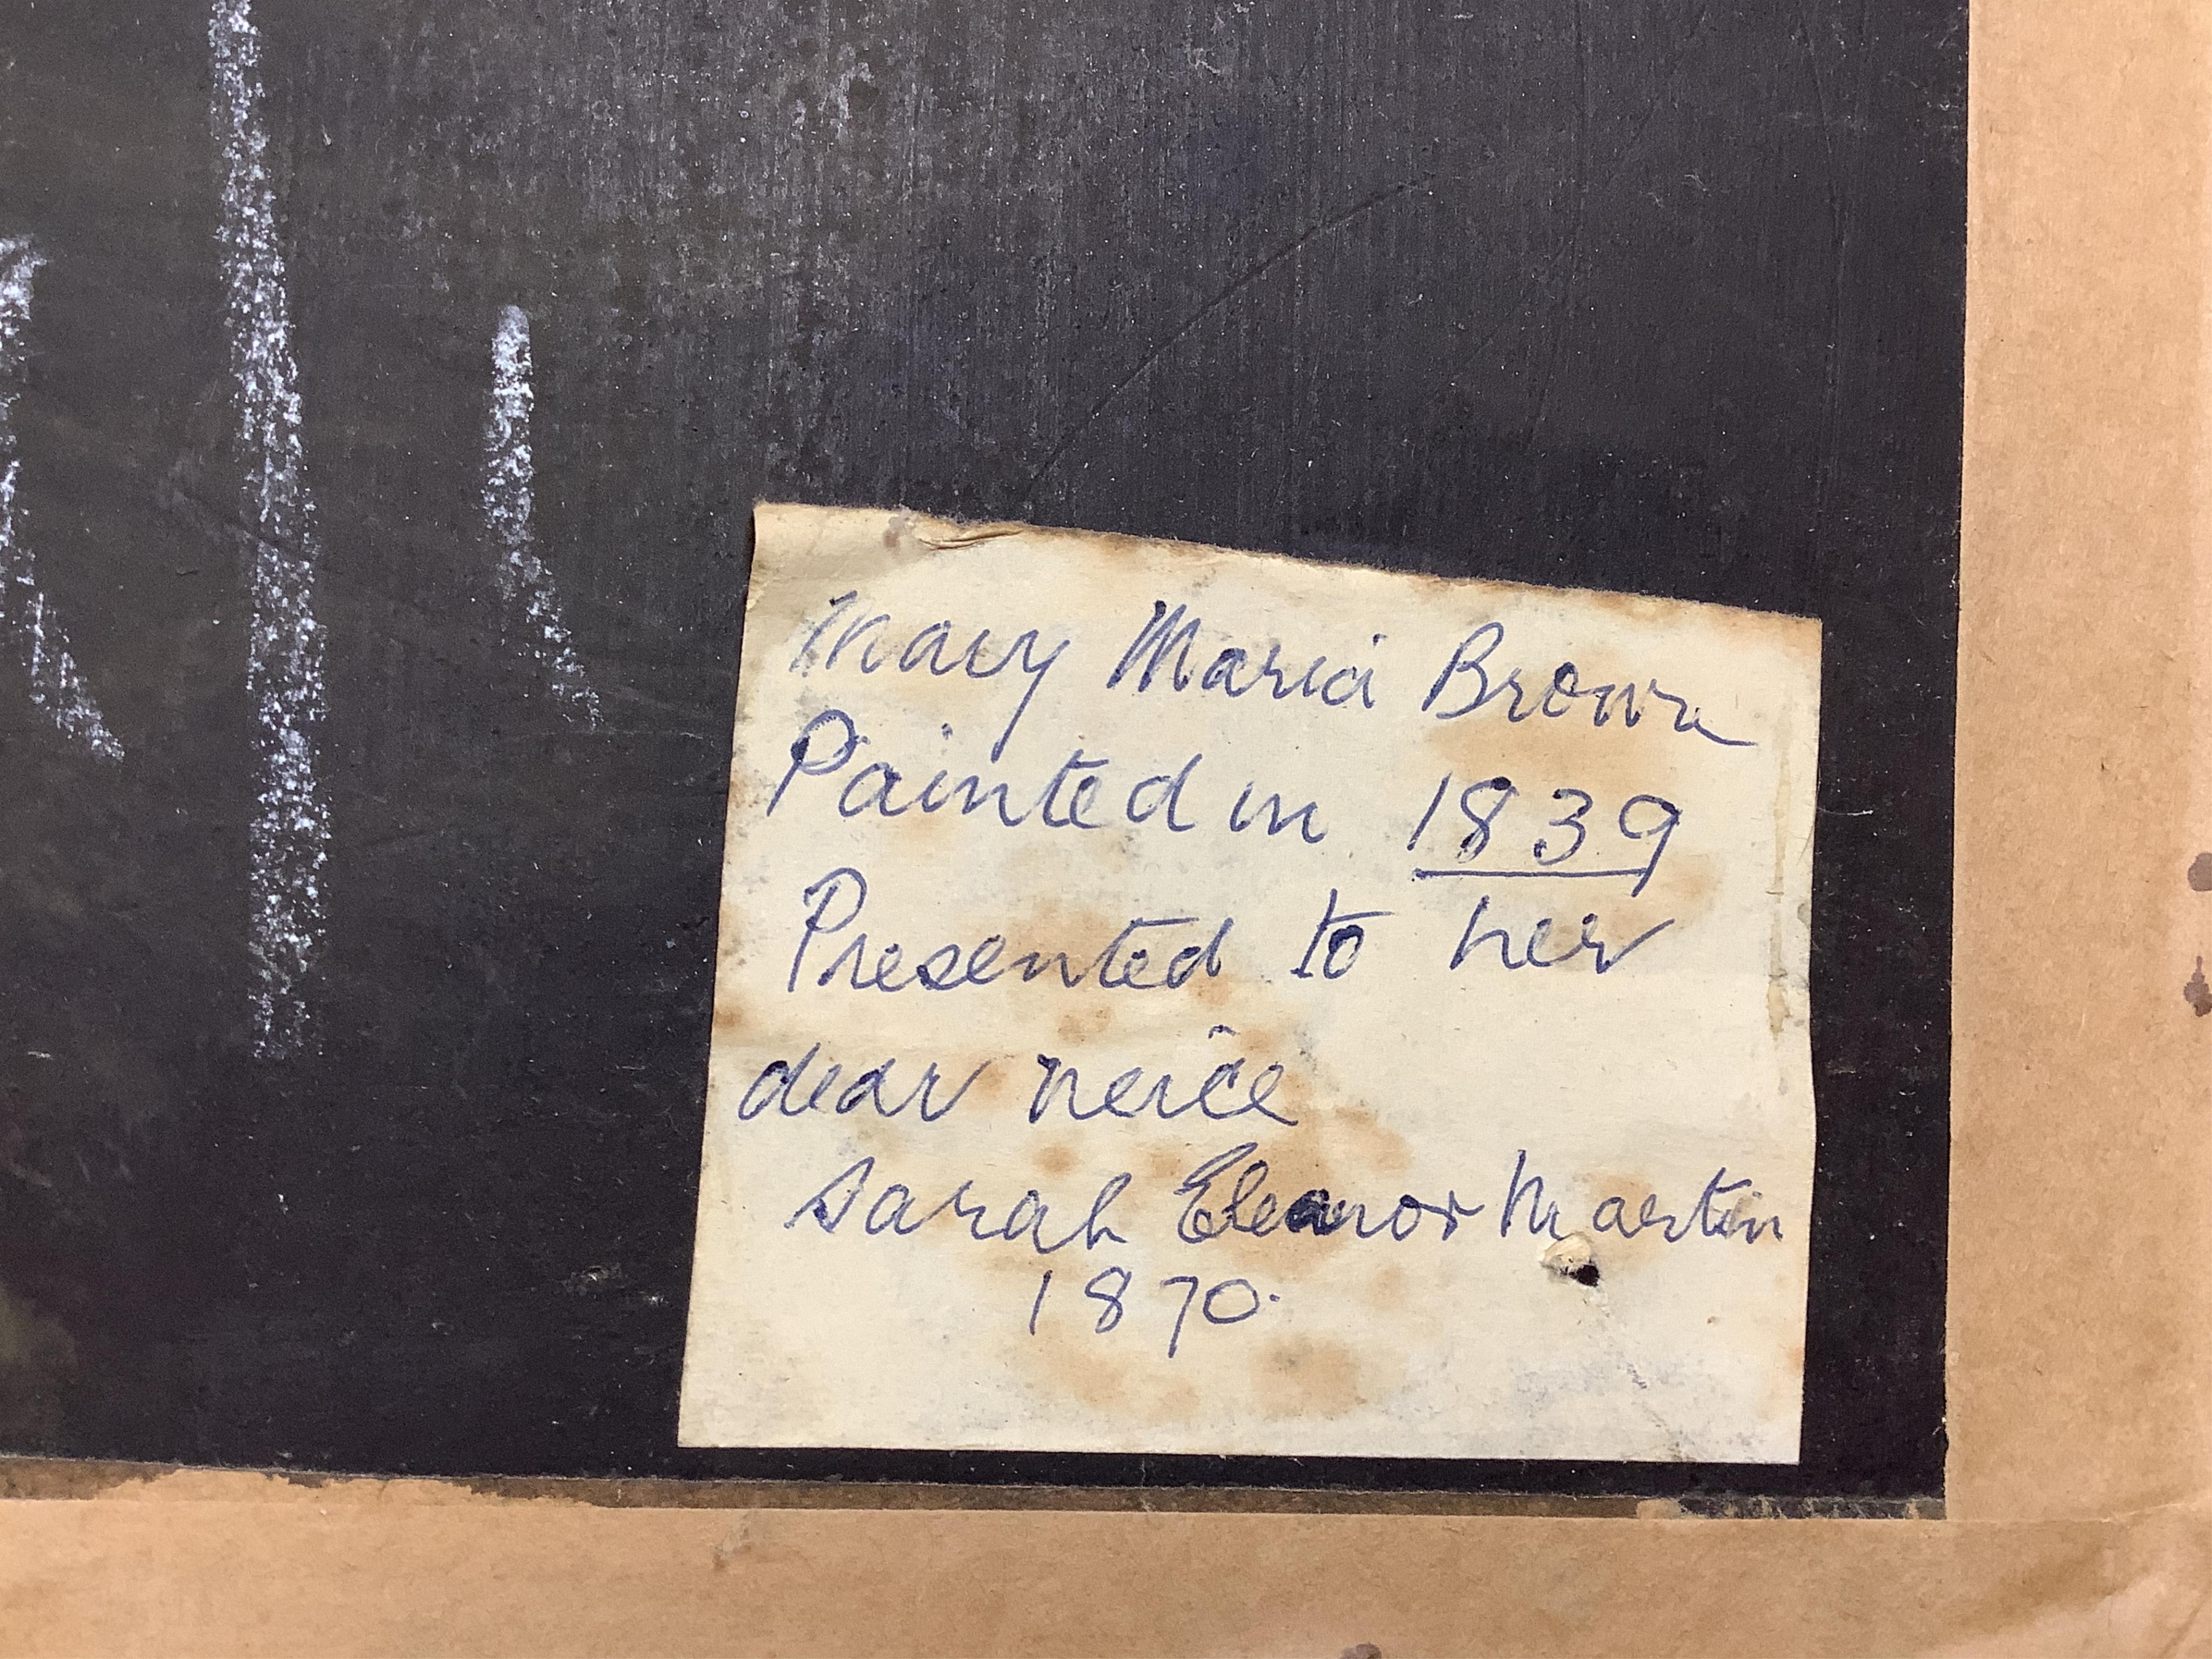 Mary Maria Brown
Painted in 1839
Presented to her
dear neice
Sarah Eleanor Martin
1870.